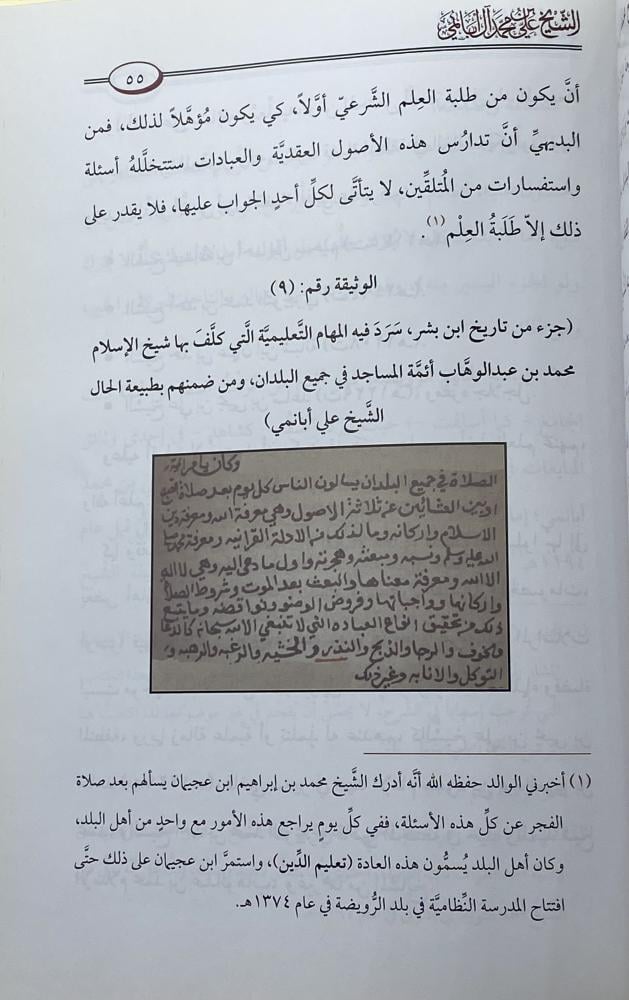 الشيخ علي بن محمد آل أبانمي
٥٥
أنَّ يكون من طلبة العِلم الشَّرعيّ أوَّلاً، كي يكون مُؤهَّلاً لذلك، فمن
البديهيِّ أنَّ تدارُس هذه الأصول العقديَّة والعبادات ستتخلَّلهُ أسئلة
واستفسارات من المُتلقِّين، لا يتأتَّى لكلِّ أحدٍ الجواب عليها، فلا يقدر على
ذلك إلاّ طَلَبةُ العِلْم(١).
الوثيقة رقم: (٩)
(جزء من تاريخ ابن بشر، سَرَدَ فيه المهام التَّعليميَّة الَّتي كلَّفَ بها شيخ الإسلام
محمد بن عبدالوهَّاب أئمَّة المساجد في جميع البلدان، ومن ضمنهم بطبيعة الحال
الشَّيخ علي أبانمي)
وكان يأمر ائمة
الصلاة في جميع البلدان يسالون الناس كل يوم بعد صلاة الصبح
او بين العشائين عن ثلاثة الاصول وهي معرفة الله ومعرفة دين
الاسلام واركانه وما لذلك من الادلة القرانيه ومعرفة محمد صلى
الله عليه وسلم ونسبه ومبعثه وهجرته واول ما دعى اليه وهي لا اله
الا الله ومعرفة معناها والبعث بعد الموت وشروط الصلاة
واركانها وواجباتها وفروض الوضوء ونواقضه وما يتبع
ذلك من تحقيق انواع العباده التي لا تنبغي الا لله سبحانه كالدعا
والخوف والرجا والذبح والنذر والخشيه والرغبه والرهبه و
التوكل والانابه وغير ذلك
(١) أخبرني الوالد حفظه الله أنَّه أدرك الشَّيخ محمد بن إبراهيم ابن عجيمان يسألهم بعد صلاة
الفجر عن كلِّ هذه الأسئلة، ففي كلِّ يومٍ يراجع هذه الأمور مع واحدٍ من أهل البلد،
وكان أهل البلد يُسمُّون هذه العادة (تعليم الدِّين)، واستمرَّ ابن عجيمان على ذلك حتَّى
افتتاح المدرسة النِّظاميَّة في بلد الرُّويضة في عام ١٣٧٤هـ.